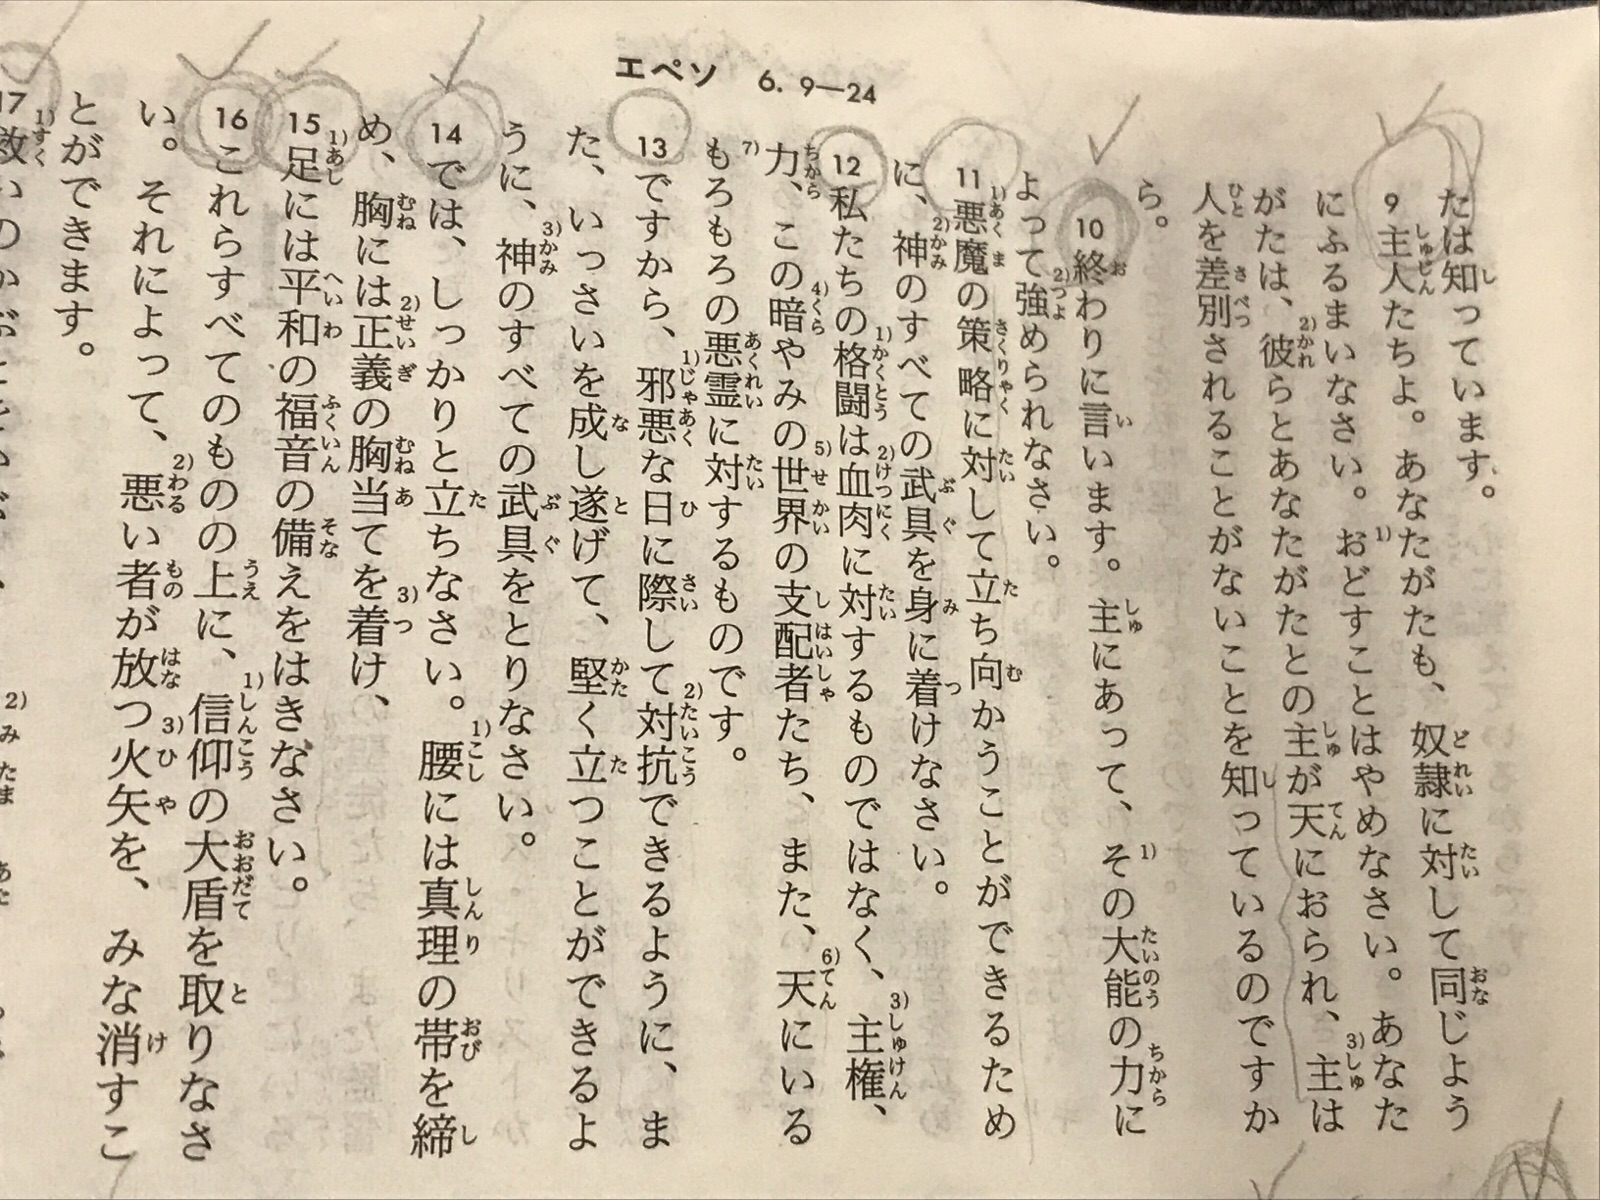 エペソ 6. 9—24
たは知っています。
9 主人たちよ。あなたがたも、奴隷に対して同じよう
にふるまいなさい。おどすことはやめなさい。あなた
がたは、彼らとあなたがたとの主が天におられ、主は
人を差別されることがないことを知っているのですか
ら。
10 終わりに言います。主にあって、その大能の力に
よって強められなさい。
11 悪魔の策略に対して立ち向かうことができるため
に、神のすべての武具を身に着けなさい。
12 私たちの格闘は血肉に対するものではなく、主権、
力、この暗やみの世界の支配者たち、また、天にいる
もろもろの悪霊に対するものです。
13 ですから、邪悪な日に際して対抗できるように、ま
た、いっさいを成し遂げて、堅く立つことができるよ
うに、神のすべての武具をとりなさい。
14 では、しっかりと立ちなさい。腰には真理の帯を締
め、胸には正義の胸当てを着け、
15 足には平和の福音の備えをはきなさい。
16 これらすべてのものの上に、信仰の大盾を取りなさ
い。それによって、悪い者が放つ火矢を、みな消すこ
とができます。
17 救いのかぶとをかぶ